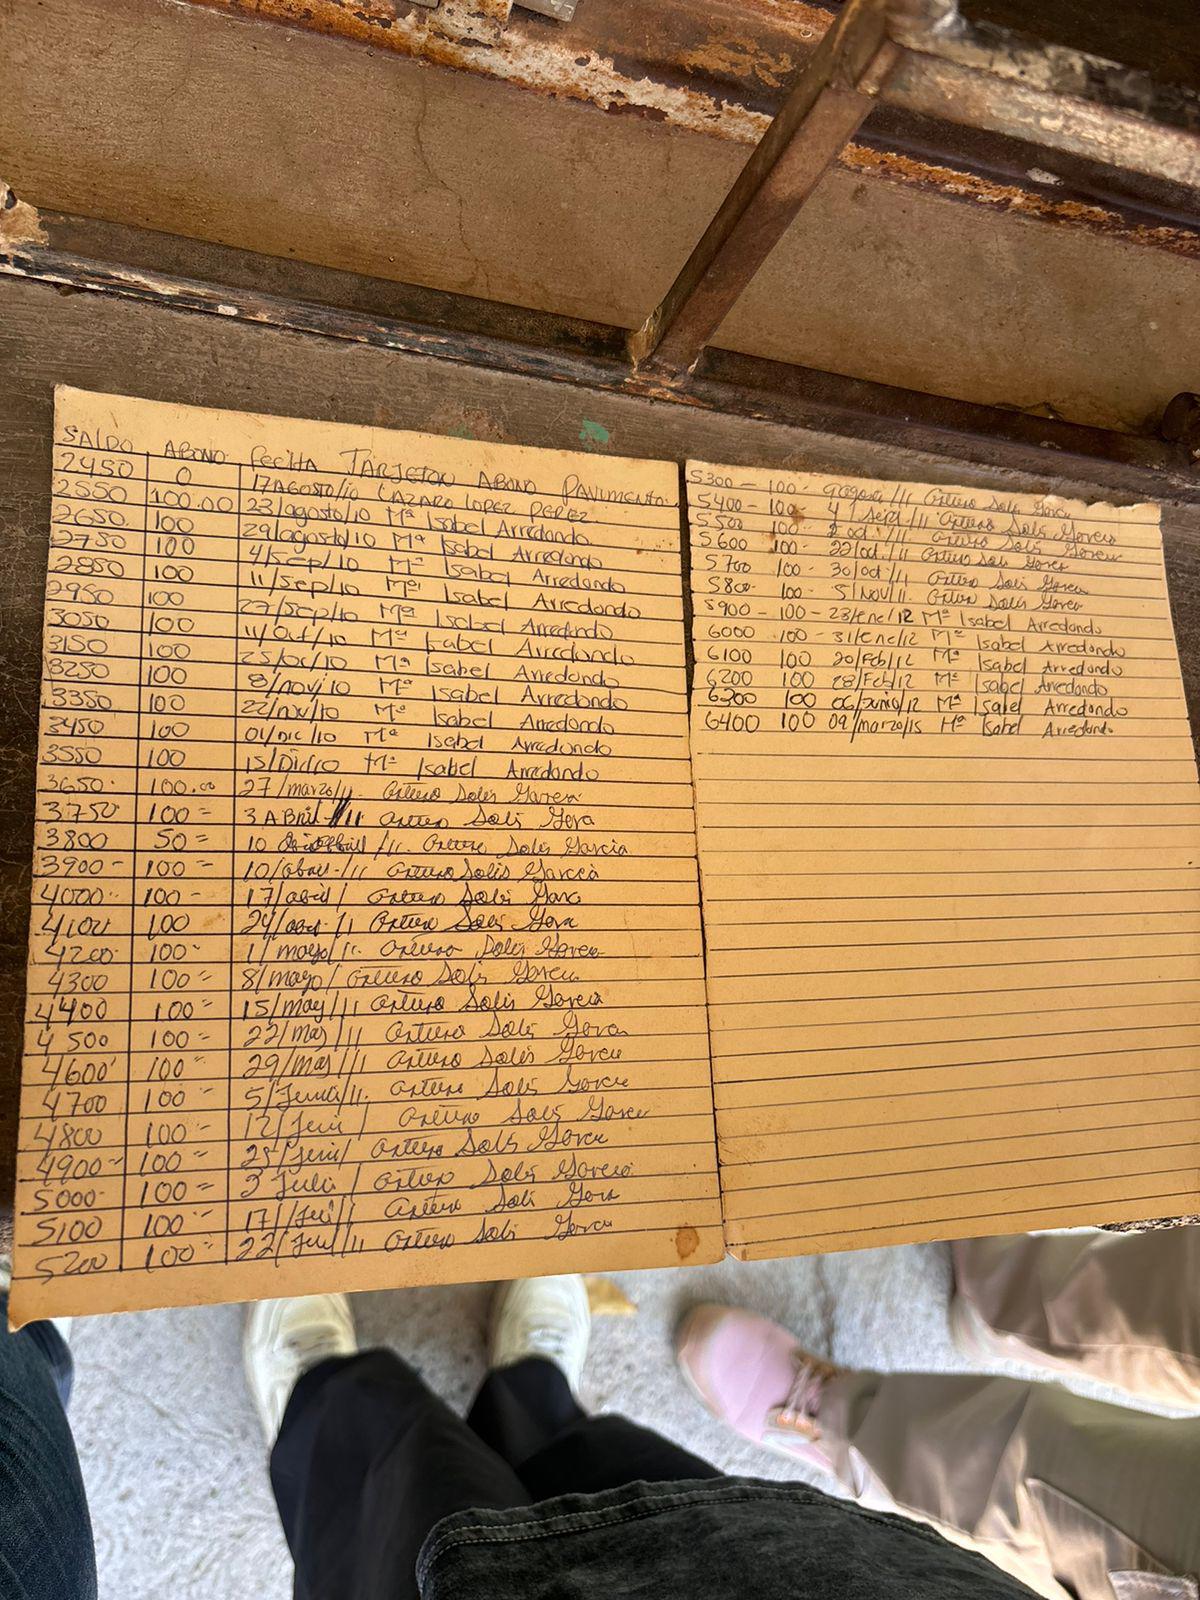 SALDO ABONO FECHA TARJETON ABONO PAVIMENTO.
2450 0 17 AGOSTO/10 LAZARO LOPEZ PEREZ
2550 100.00 23/agosto/10 Mª Isabel Arredondo
2650 100 29/agosto/10 Mª Isabel Arredondo
2750 100 4/sep/10 Mª Isabel Arredondo
2850 100 11/sep/10 Mª Isabel Arredondo
2950 100 27/sep/10 Mª Isabel Arredondo
3050 100 11/Oct/10 Mª Isabel Arredondo
3150 100 25/Oc/10 Mª Isabel Arredondo
3250 100 8/nov/10 Mª Isabel Arredondo
3350 100 22/nov/10 Mª Isabel Arredondo
3450 100 01/Dic/10 Mª Isabel Arredondo
3550 100 15/Dic/10 Mª Isabel Arredondo
3650 100.00 27/marzo/11. Arturo Solis Garcia
3750 100= 3 Abril 11 Arturo Solis
3800 50= 10 /11. Arturo Solis Garcia
3900- 100= 10/abril/11 Arturo Solis Garcia
4000 100- 17/abril/ Arturo Solis
4100 100 24/ /11 Arturo Solis
4200 100- 1/mayo/11. Arturo Solis
4300 100= 8/mayo/ Arturo Solis
4400 100= 15/May/11 Arturo Solis Garcia
4500 100= 22/May/11 Arturo Solis
4600 100= 29/May/11 Arturo Solis
4700 100- 5/Junio/11. Arturo Solis
4800 100- 12/Juni/ Arturo Solis
4900- 100= /Juni/ Arturo Solis
5000- 100= 3 Juli / Arturo Solis
5100 100- 17/Jul/ Arturo Solis
5200 100= 22/Jul/11 Arturo Solis
5300 - 100- 9 agosto/11 Arturo Solis
5400 - 100- 4 Sept/11 Arturo Solis
5500 100- oct/11 Arturo Solis
5600 100- 22/oct/11 Arturo Solis
5700 100- 30/oct/11 Arturo Solis
5800 100- 5/Nov/11. Arturo Solis
5900 - 100 - 23/ene/12 Mª Isabel Arredondo
6000 100 - 31/ene/12 Mª Isabel Arredondo
6100 100 20/Feb/12 Mª Isabel Arredondo
6200 100 28/Feb/12 Mª Isabel Arredondo
6300 100 06/Junio/12 Mª Isabel Arredondo
6400 100 09/marzo/15 Mª Isabel Arredondo